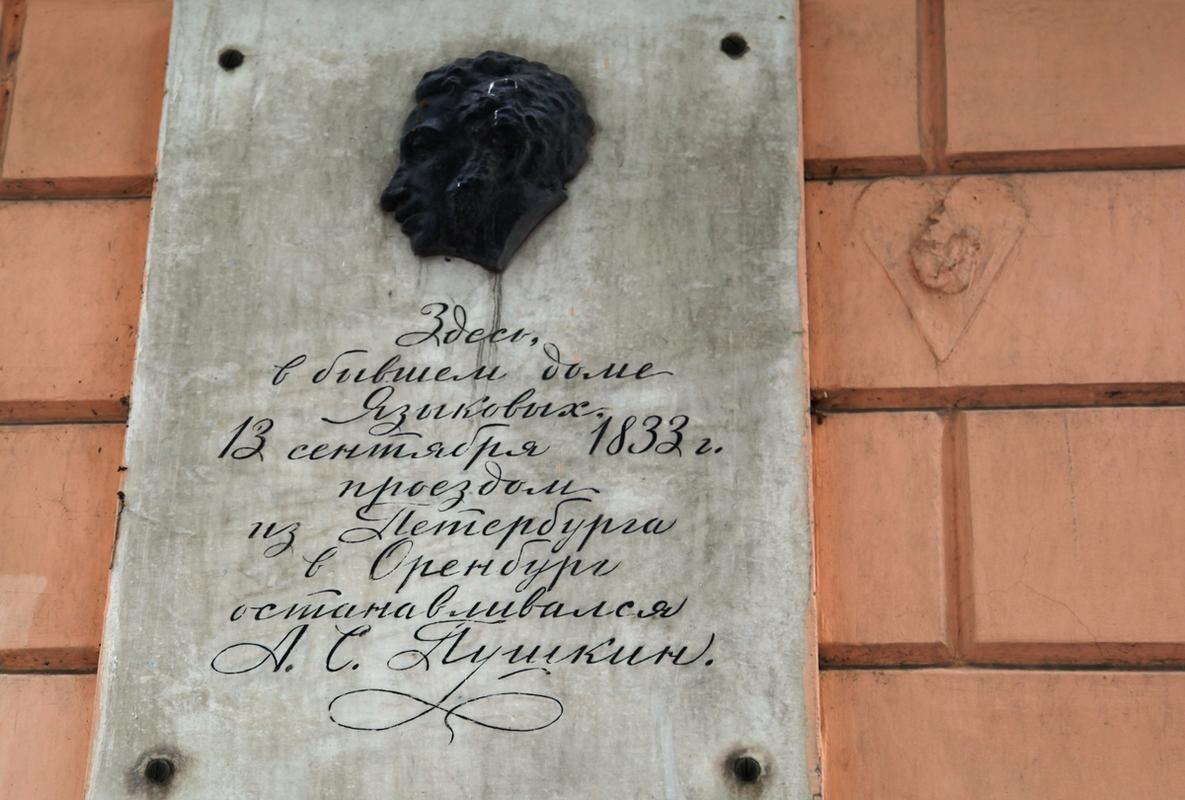 Здесь,
в бывшем доме
Языковых,
13 сентября 1833 г.
проездом
из Петербурга
в Оренбург
останавливался
А. С. Пушкин.